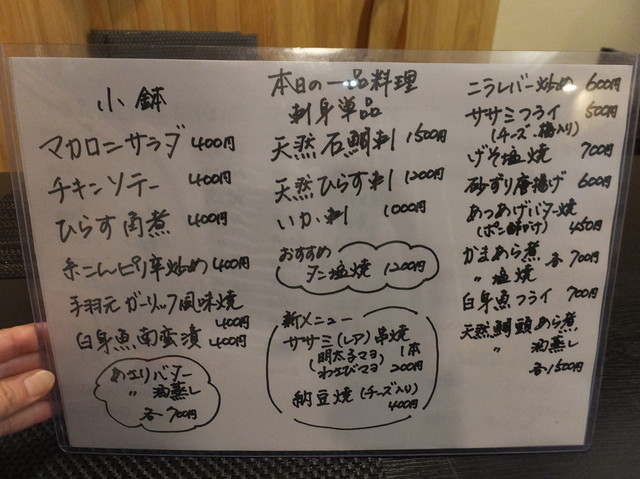 小鉢
マカロニサラダ 400円
チキンソテー 400円
ひらす角煮 400円
糸こんピリ辛炒め 400円
手羽元ガーリック風味焼
400円
白身魚南蛮漬 400円
あさりバター
〃 酒蒸し
各700円
本日の一品料理
刺身単品
天然石鯛刺 1500円
天然ひらす刺 1200円
いか刺 1000円
おすすめ
タン塩焼 1200円
新メニュー
ササミ(レア)串焼
(明太子マヨ 1本
わさびマヨ) 200円
納豆焼(チーズ入り)
400円
ニラレバー炒め 600円
ササミフライ 500円
(チーズ・梅入り)
げそ塩焼 700円
砂ずり唐揚げ 600円
あつあげバター焼
(ポン酢がけ) 450円
かまあら煮 各700円
〃 塩焼
白身魚フライ 700円
天然鯛頭あら煮
〃 酒蒸し
各1500円